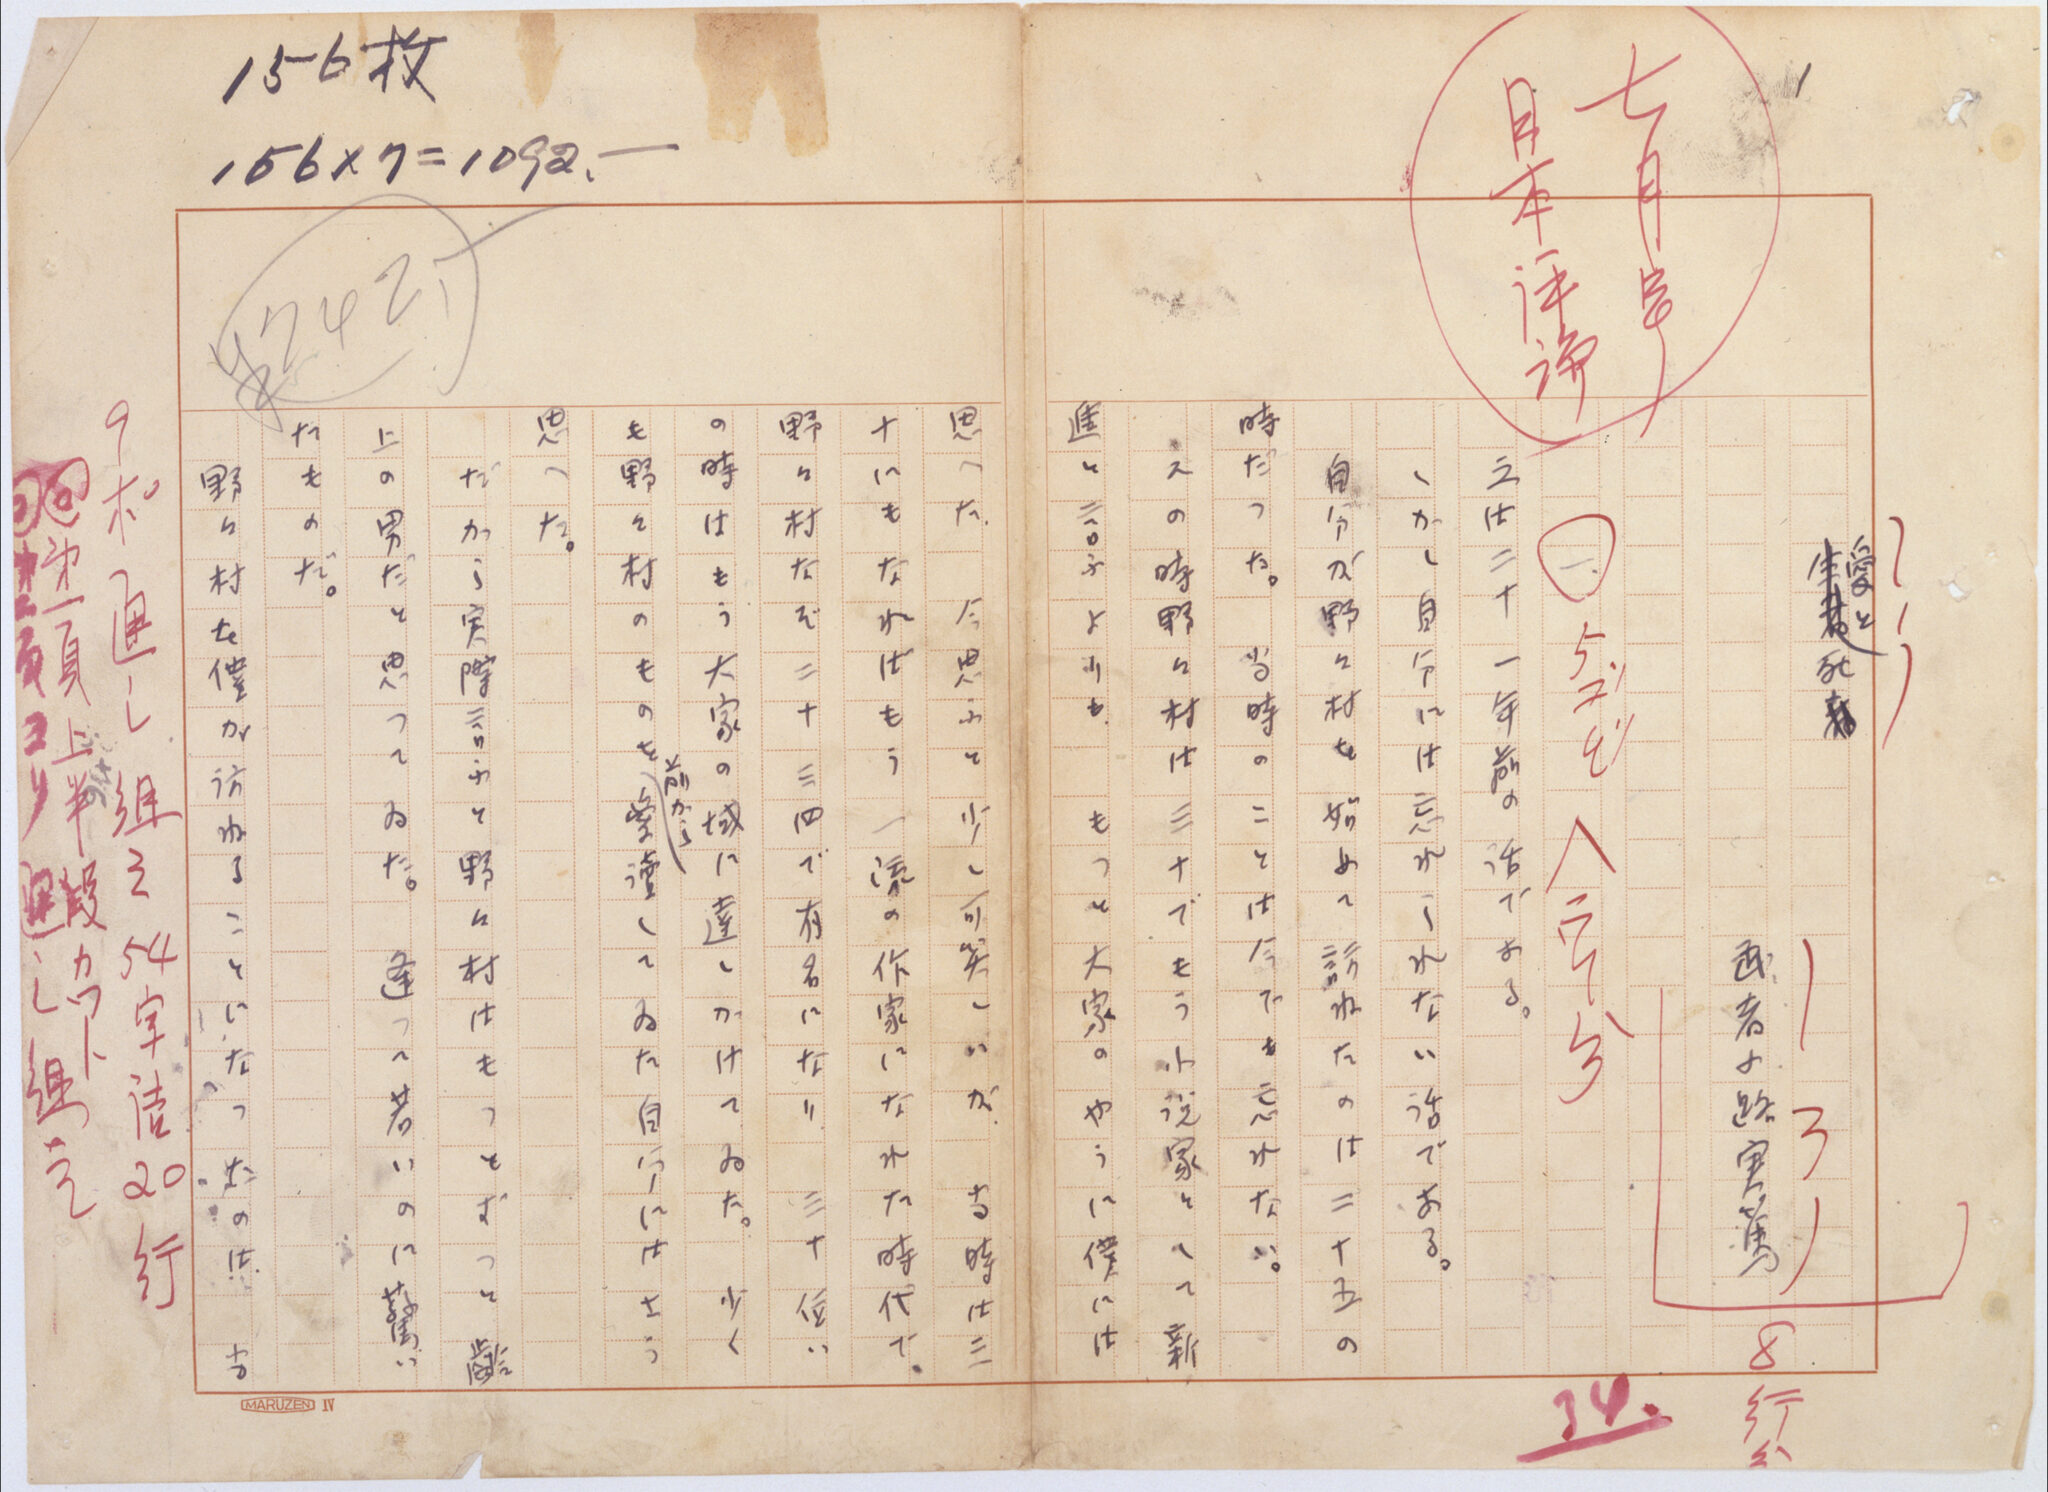 1
七月号
日本評論
愛と
死
武者小路実篤
8行分
34.
一
5ゴヂ
八行分
之は二十一年前の話である。
しかし自分には忘れられない話である。
自分が野々村を始めて訪ねたのは二十五の
時だつた。当時のことは今でも忘れない。
その時野々村は三十でもう小説家として新
進と言ふよりも、もつと大家のやうに僕には
思つた、今思ふと少し可笑しいが、当時は三
十にもなればもう一流の作家になれた時代で、
野々村なぞ二十三四で有名になり、三十位い
の時はもう大家の域に達しかけてゐた。少く
も野々村のものを前から愛読してゐた自分にはさう
思つた。
だから実際言ふと野々村はもつとずつと齢
上の男だと思つてゐた。逢つて若いのに驚い
たものだ。
野々村を僕が訪ねることになつたのは、
156枚
156×7=1092.一
9ポ通し組 54字詰20行
第一頁上半段カット
通し組
MARUZEN IV